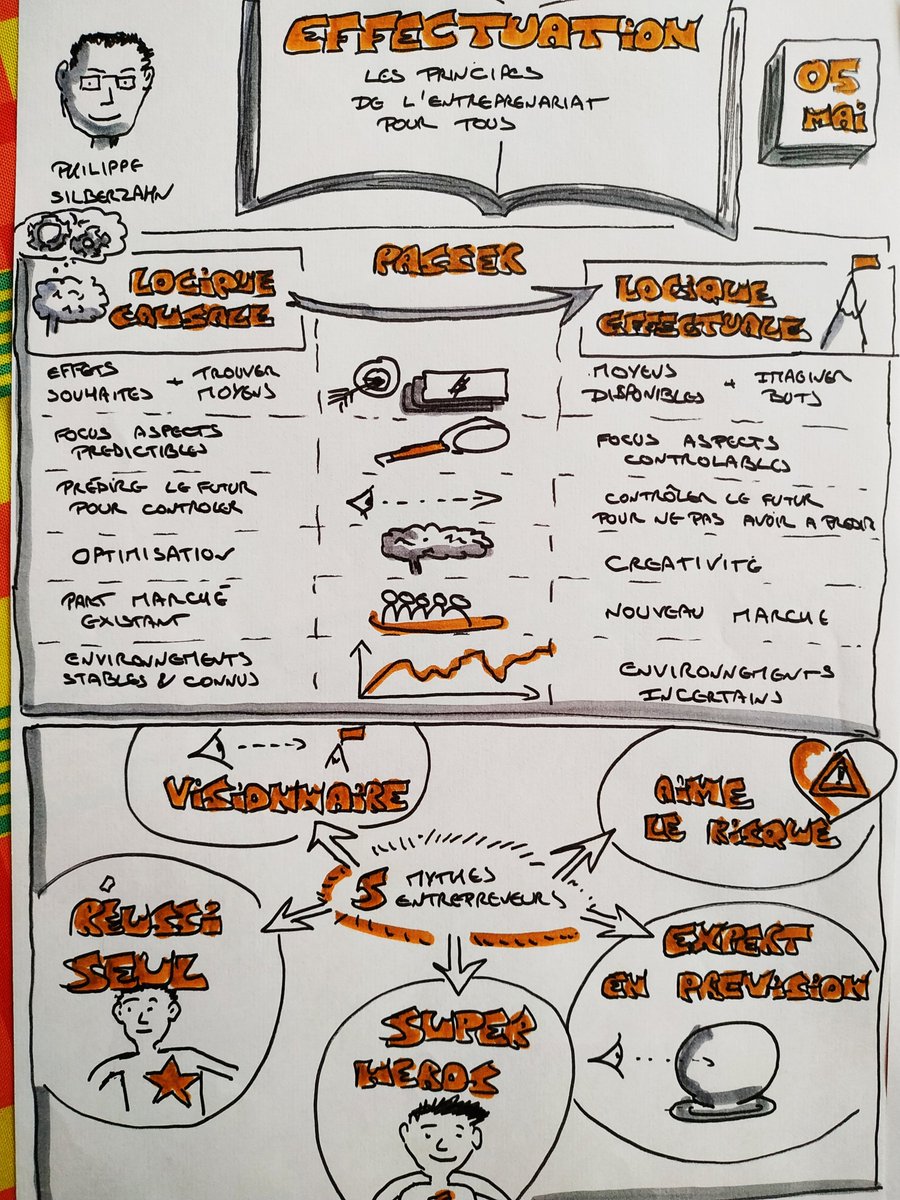 EFFECTUATION
LES PRINCIPES
DE L'ENTREPRENARIAT
POUR TOUS
05
MAI
PHILIPPE
SILBERZAHN
PASSER
LOGIQUE
CAUSALE
LOGIQUE
EFFECTUALE
EFFETS
SOUHAITES + TROUVER
MOYENS
MOYENS
DISPONIBLES + IMAGINER
BUTS
FOCUS ASPECTS
PREDICTIBLES
FOCUS ASPECTS
CONTROLABLES
PRÉDIRE LE FUTUR
POUR CONTROLER
CONTRÔLER LE FUTUR
POUR NE PAS AVOIR A PREDIR
OPTIMISATION
CREATIVITÉ
PART MARCHÉ
EXISTANT
NOUVEAU MARCHE
ENVIRONNEMENTS
STABLES & CONNUS
ENVIRONNEMENTS
INCERTAINS
VISIONNAIRE
AIME
LE RISQUE
5 MYTHES
ENTREPREVEURS
RÉUSSI
SEUL
EXPERT
EN PREVISION
SUPER
HEROS